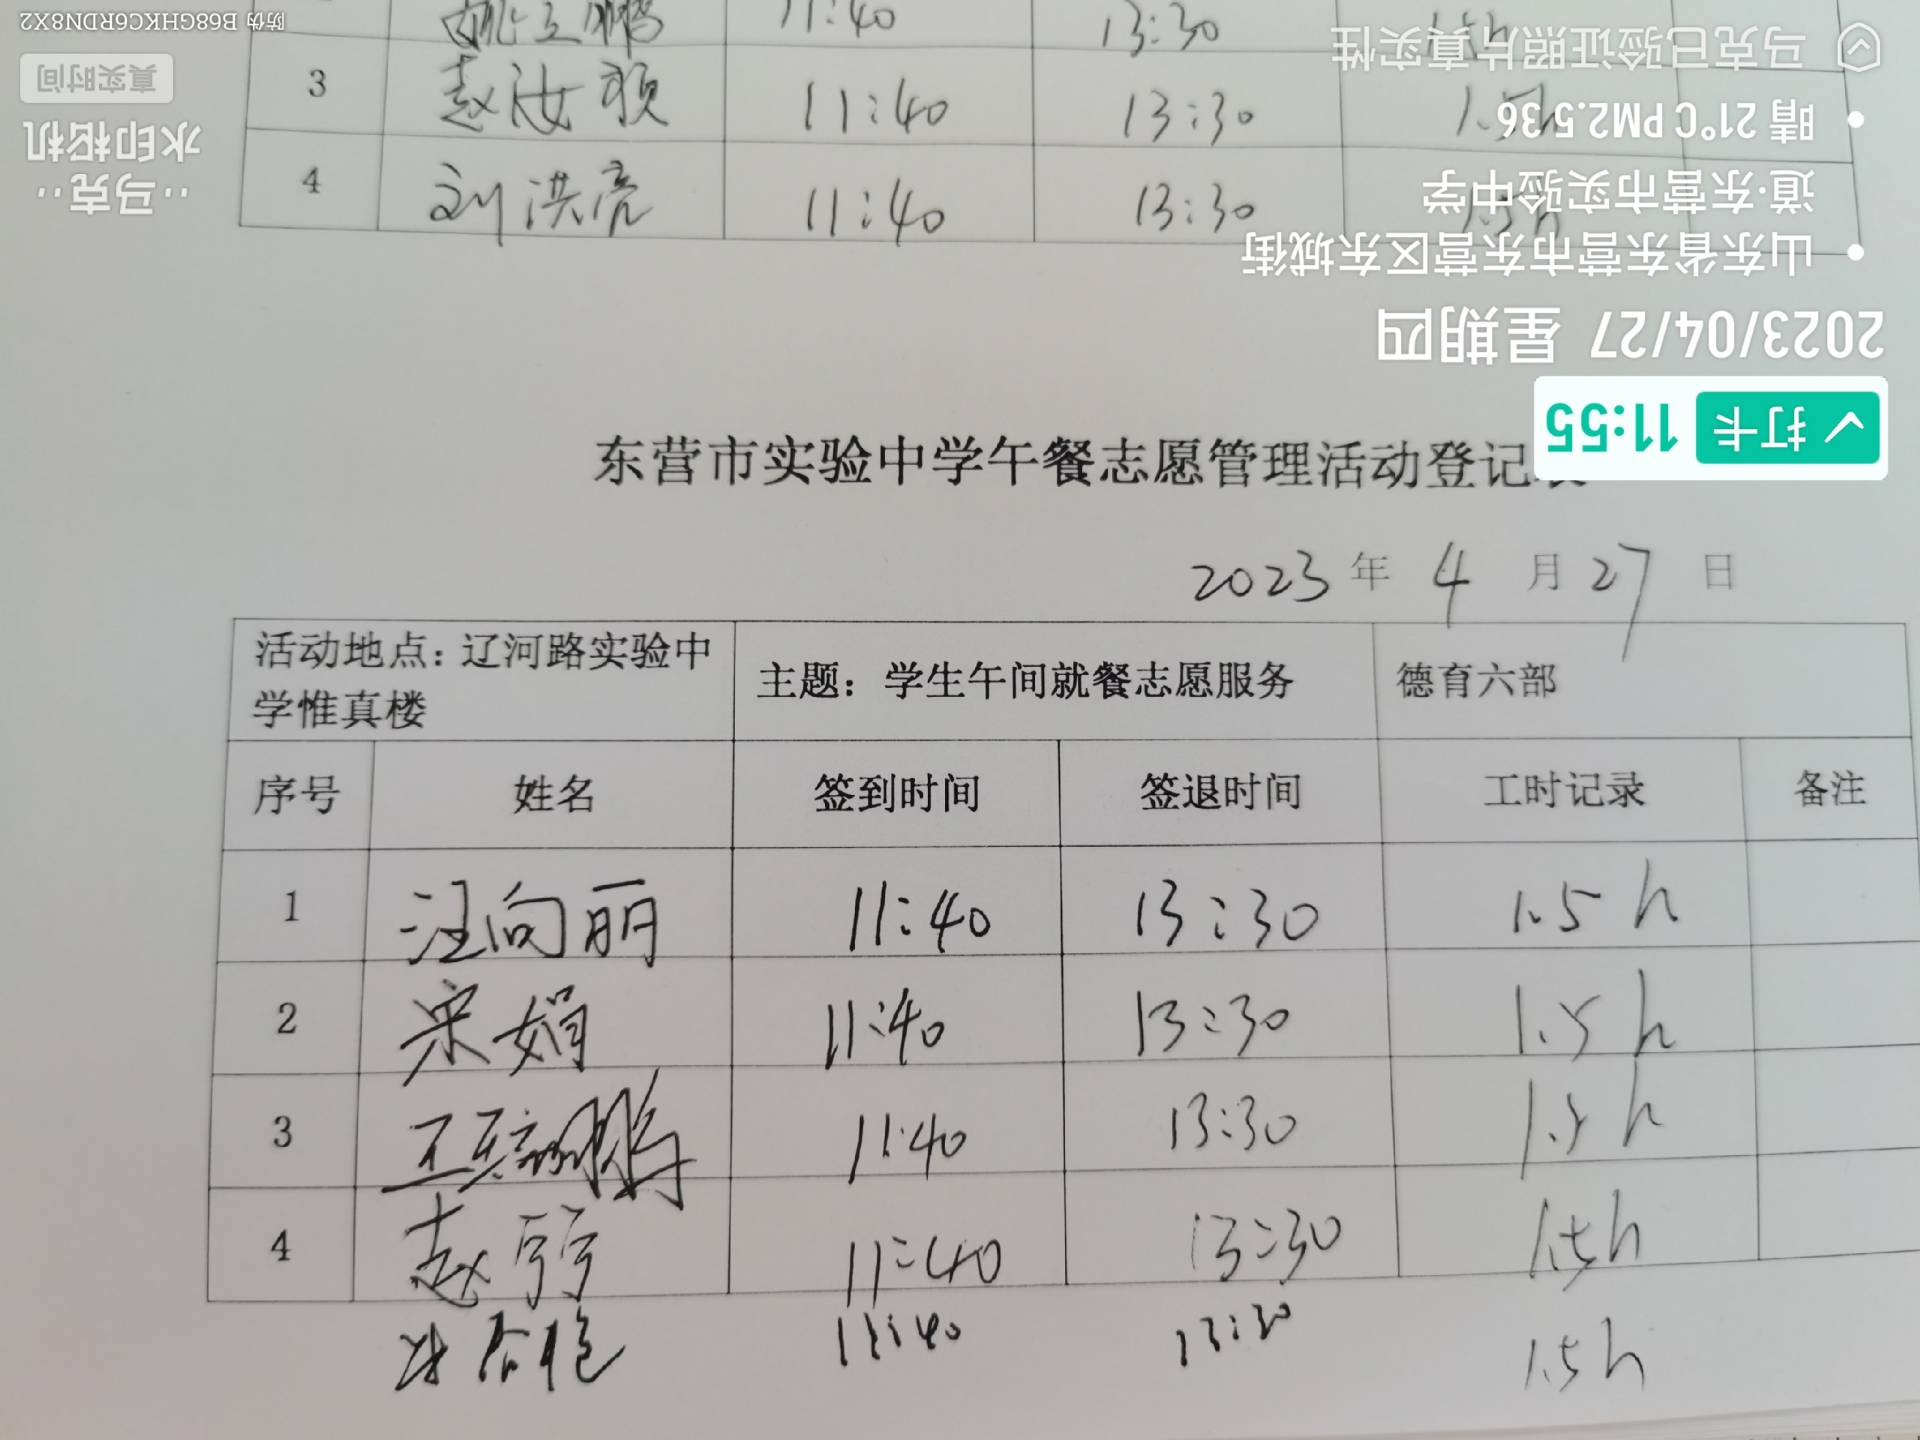 姚立鹏 11:40 13:30 1.5h
3 赵汝颖 11:40 13:30 1.5h
4 刘洪亮 11:40 13:30 1.5h
东营市实验中学午餐志愿管理活动登记表
2023 年 4 月 27 日
活动地点：辽河路实验中
学惟真楼
主题：学生午间就餐志愿服务
德育六部
序号 姓名 签到时间 签退时间 工时记录 备注
1 汪向丽 11:40 13:30 1.5h
2 宋娟 11:40 13:30 1.5h
3 11:40 13:30 1.5h
4 赵 11:40 13:30 1.5h
11:40 13:30 1.5h
打卡 11:55
2023/04/27 星期四
山东省东营市东营区东城街
道·东营市实验中学
晴 21°C PM2.5 36
马克已验证照片真实性
马克
水印相机
真实时间
防伪 B68GHKC6RDN8X2